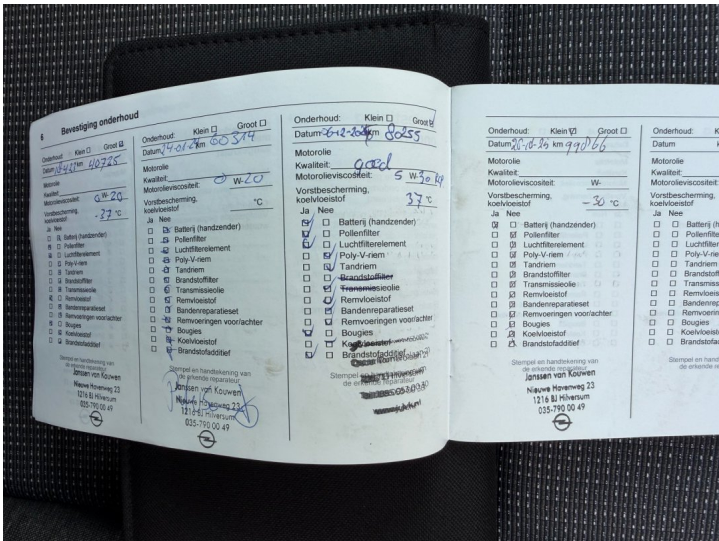 6 Bevestiging onderhoud
Onderhoud: Klein Groot
Datum km 40725
Motorolie
Kwaliteit:
Motorolieviscositeit: 0 W-20
Vorstbescherming,
koelvloeistof -37 °C
Ja Nee
Batterij (handzender)
Pollenfilter
Luchtfilterelement
Poly-V-riem
Tandriem
Brandstoffilter
Transmissieolie
Remvloeistof
Bandenreparatieset
Remvoeringen voor/achter
Bougies
Koelvloeistof
Brandstofadditief
Stempel en handtekening van
de erkende reparateur
Janssen van Kouwen
Nieuwe Havenweg 23
1216 BJ Hilversum
035-790 00 49
Onderhoud: Klein Groot
Datum km 60314
Motorolie
Kwaliteit:
Motorolieviscositeit: 0 W-20
Vorstbescherming,
koelvloeistof °C
Ja Nee
Batterij (handzender)
Pollenfilter
Luchtfilterelement
Poly-V-riem
Tandriem
Brandstoffilter
Transmissieolie
Remvloeistof
Bandenreparatieset
Remvoeringen voor/achter
Bougies
Koelvloeistof
Brandstofadditief
Stempel en handtekening van
de erkende reparateur
Janssen van Kouwen
Nieuwe Havenweg 23
1216 BJ Hilversum
035-790 00 49
Onderhoud: Klein Groot
Datum km 80255
Motorolie
Kwaliteit: goed
Motorolieviscositeit: 5 W-30
Vorstbescherming,
koelvloeistof 37 °C
Ja Nee
Batterij (handzender)
Pollenfilter
Luchtfilterelement
Poly-V-riem
Tandriem
Brandstoffilter
Transmissieolie
Remvloeistof
Bandenreparatieset
Remvoeringen voor/achter
Bougies
Koelvloeistof
Brandstofadditief
Stempel en handtekening van
de erkende reparateur
Onderhoud: Klein Groot
Datum km 99866
Motorolie
Kwaliteit:
Motorolieviscositeit: W-
Vorstbescherming,
koelvloeistof -30 °C
Ja Nee
Batterij (handzender)
Pollenfilter
Luchtfilterelement
Poly-V-riem
Tandriem
Brandstoffilter
Transmissieolie
Remvloeistof
Bandenreparatieset
Remvoeringen voor/achter
Bougies
Koelvloeistof
Brandstofadditief
Stempel en handtekening van
de erkende reparateur
Janssen van Kouwen
Nieuwe Havenweg 23
1216 BJ Hilversum
035-790 00 49
Onderhoud: K
Datum
Motorolie
Kwaliteit:
Motorolieviscositeit:
Vorstbescherming,
koelvloeistof
Ja Nee
Batterij (h
Pollenfilte
Luchtfilte
Poly-V-rie
Tandriem
Brandstof
Transmiss
Remvloeis
Bandenrep
Remvoerin
Bougies
Koelvloeist
Brandstofa